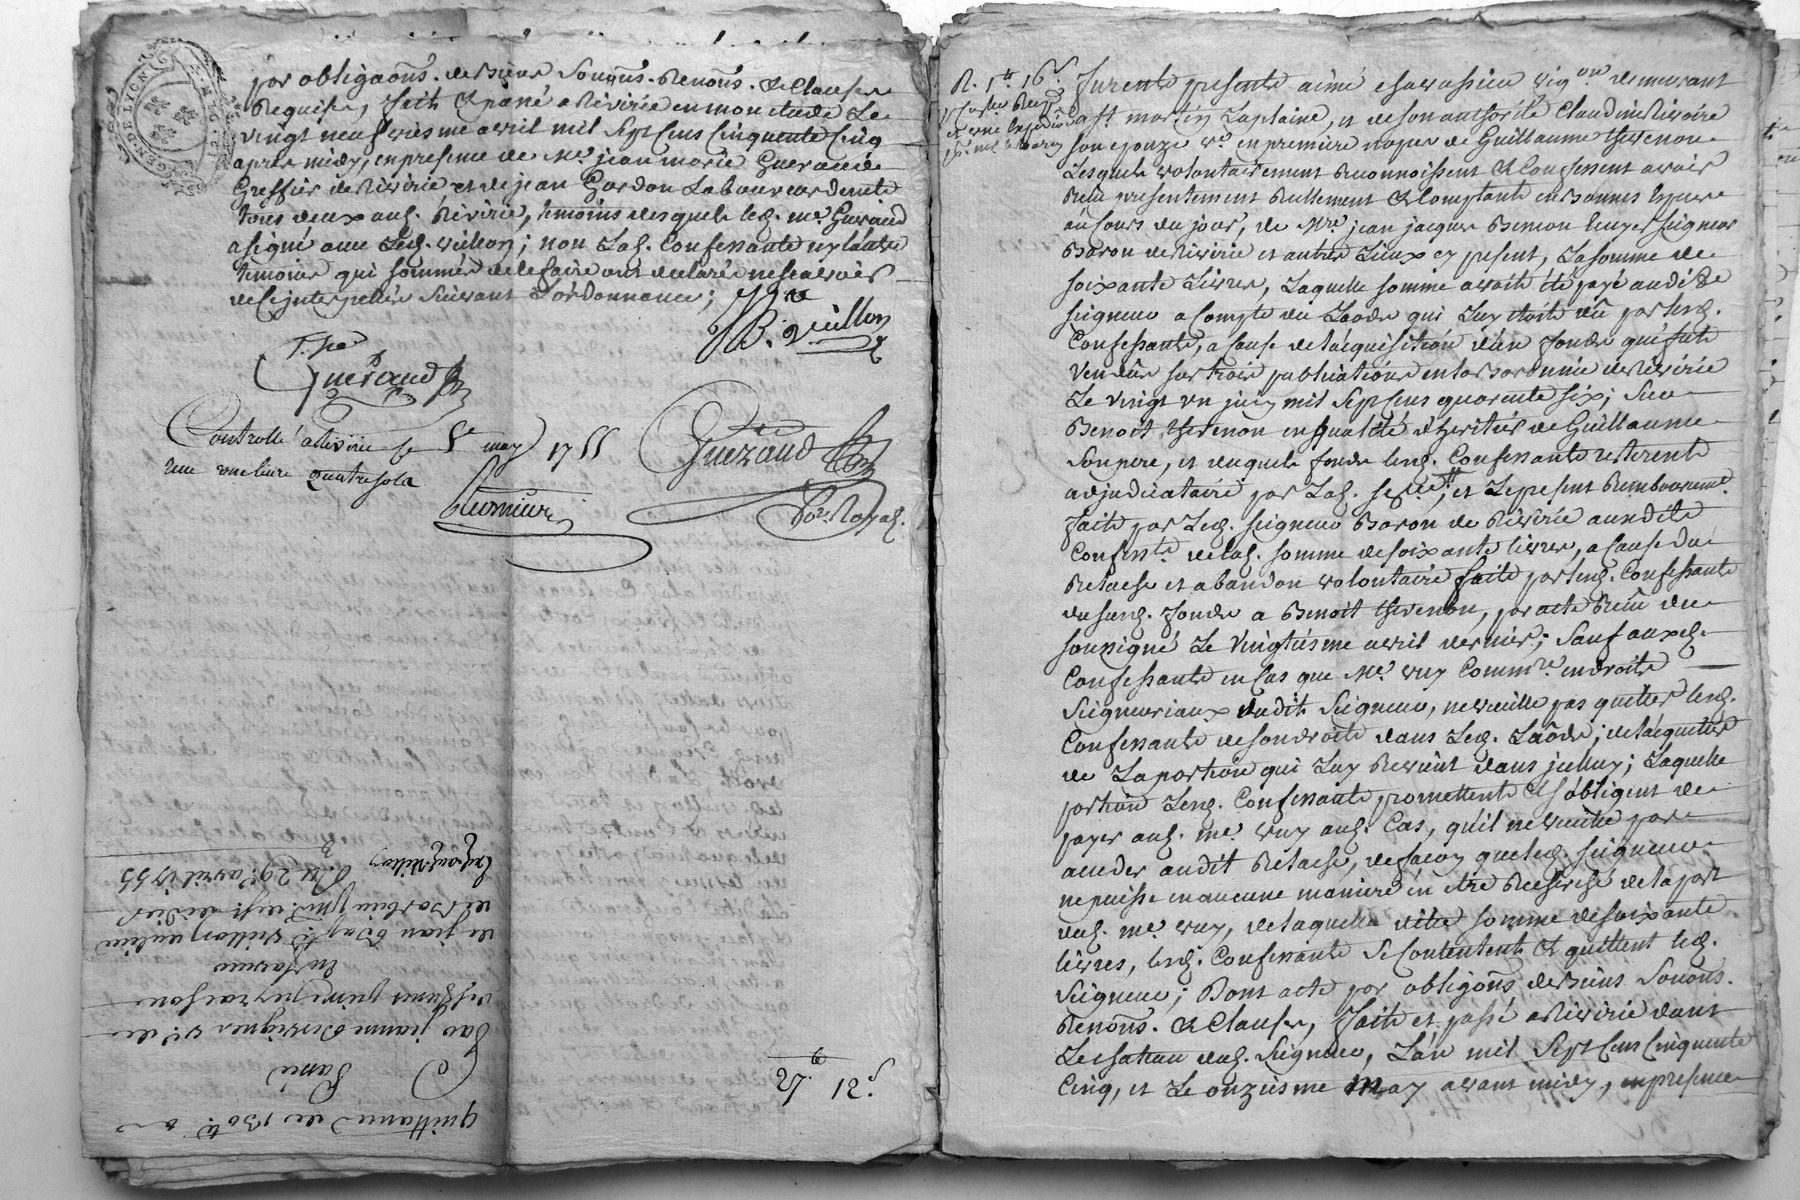 GEN. DE LYON
par obligaons. de biens soums. Renons. & Clauses
Requises, fait & passé a Rivirie en mon etude Le
vingt neufviesme avril mil sept cens cinquante cinq
apres midy, en presence de Me. jean marie Gueraud
Greffier de Riverie et de jean Gardon Laboureur
tous deux aud. Rivirie, temoins desquels led. me. Gueraud
a signé avec led. veillon; non lad. Confessante ny l'autre
temoins qui sommés de le faire ont declarés ne scavoir
de ce interpellés suivant L'ordonnance;
B. veillon
Gueraud
Controllé a Rivirie le 8e may 1755
reçu une livre quatre sols
Gueraud
No.re Royal.
quittance de 130 lt.
Passé
Par jeanne
en faveur
de jean Bapt. veillon
de st. didier
Du 29e. avril 1755
R. 1 lt 16 s.
Furent presents aimé esavassieu vig.on demeurant
a st. martin Laplaine, et de son authorité Claudine Rivoire
son epouze ve. en premiere noces de Guillaume thevenon
Lesquels volontairement Reconnoissent & Confessent avoir
Reçu presentement Reellement & Comptant en bonnes especes
au cours du jour, de Mre. jean jacques Benion Ecuyer Seigneur
Baron de Rivirie et autres Lieux cy present, La somme de
soixante Livres, Laquelle somme avoit été payé audit
seigneur a compte du Laods qui Luy etoit dû par lesd.
Confessants, a cause de l'acquisition d'un fonds qui fut
vendu sur trois publications en la Baronnie de Rivirie
Le vingt un juin mil sept cens quarente six; sur
Benoit thevenon en qualité d'heritier de Guillaume
son pere, et duquel fonds lesd. Confessants resterent
adjudicataire par Lad. et Le present Remboursemt.
fait par Led. seigneur Baron de Rivirie auxdits
Confessts. de lad. somme de soixante livres, a cause du
Relache et abandon volontaire fait par lesd. Confessants
dususd. fonds a Benoit thevenon, par acte Reçu du
soussigné Le vingtiesme avril dernier; sauf auxd.
Confessants en cas que Me. wuy Commre. en droits
seigneuriaux dudit seigneur, ne veuille pas quitter lesd.
Confessants de son droit dans Led. Laods; de l'acquitter
de La portion qui Luy Revient dans jcelluy; Laquelle
portion Lesd. Confessants promettent & s'obligent de
payer aud. me. wuy aud. cas, qu'il ne veuille pas
acceder audit Relache, de facon que led. seigneur
ne puisse en aucune maniere en etre Recherché de la part
dud. me. wuy, de laquelle ditte somme de soixante
livres, lesd. Confessants se Contentent & quittent led.
seigneur; Dont acte par obligons. de biens soums.
Renons. & Clauses, fait et passé a Riviriè dans
Le chateau dud. seigneur, L'an mil sept cens cinquante
cinq, et Le onziesme may avant midy, en presence